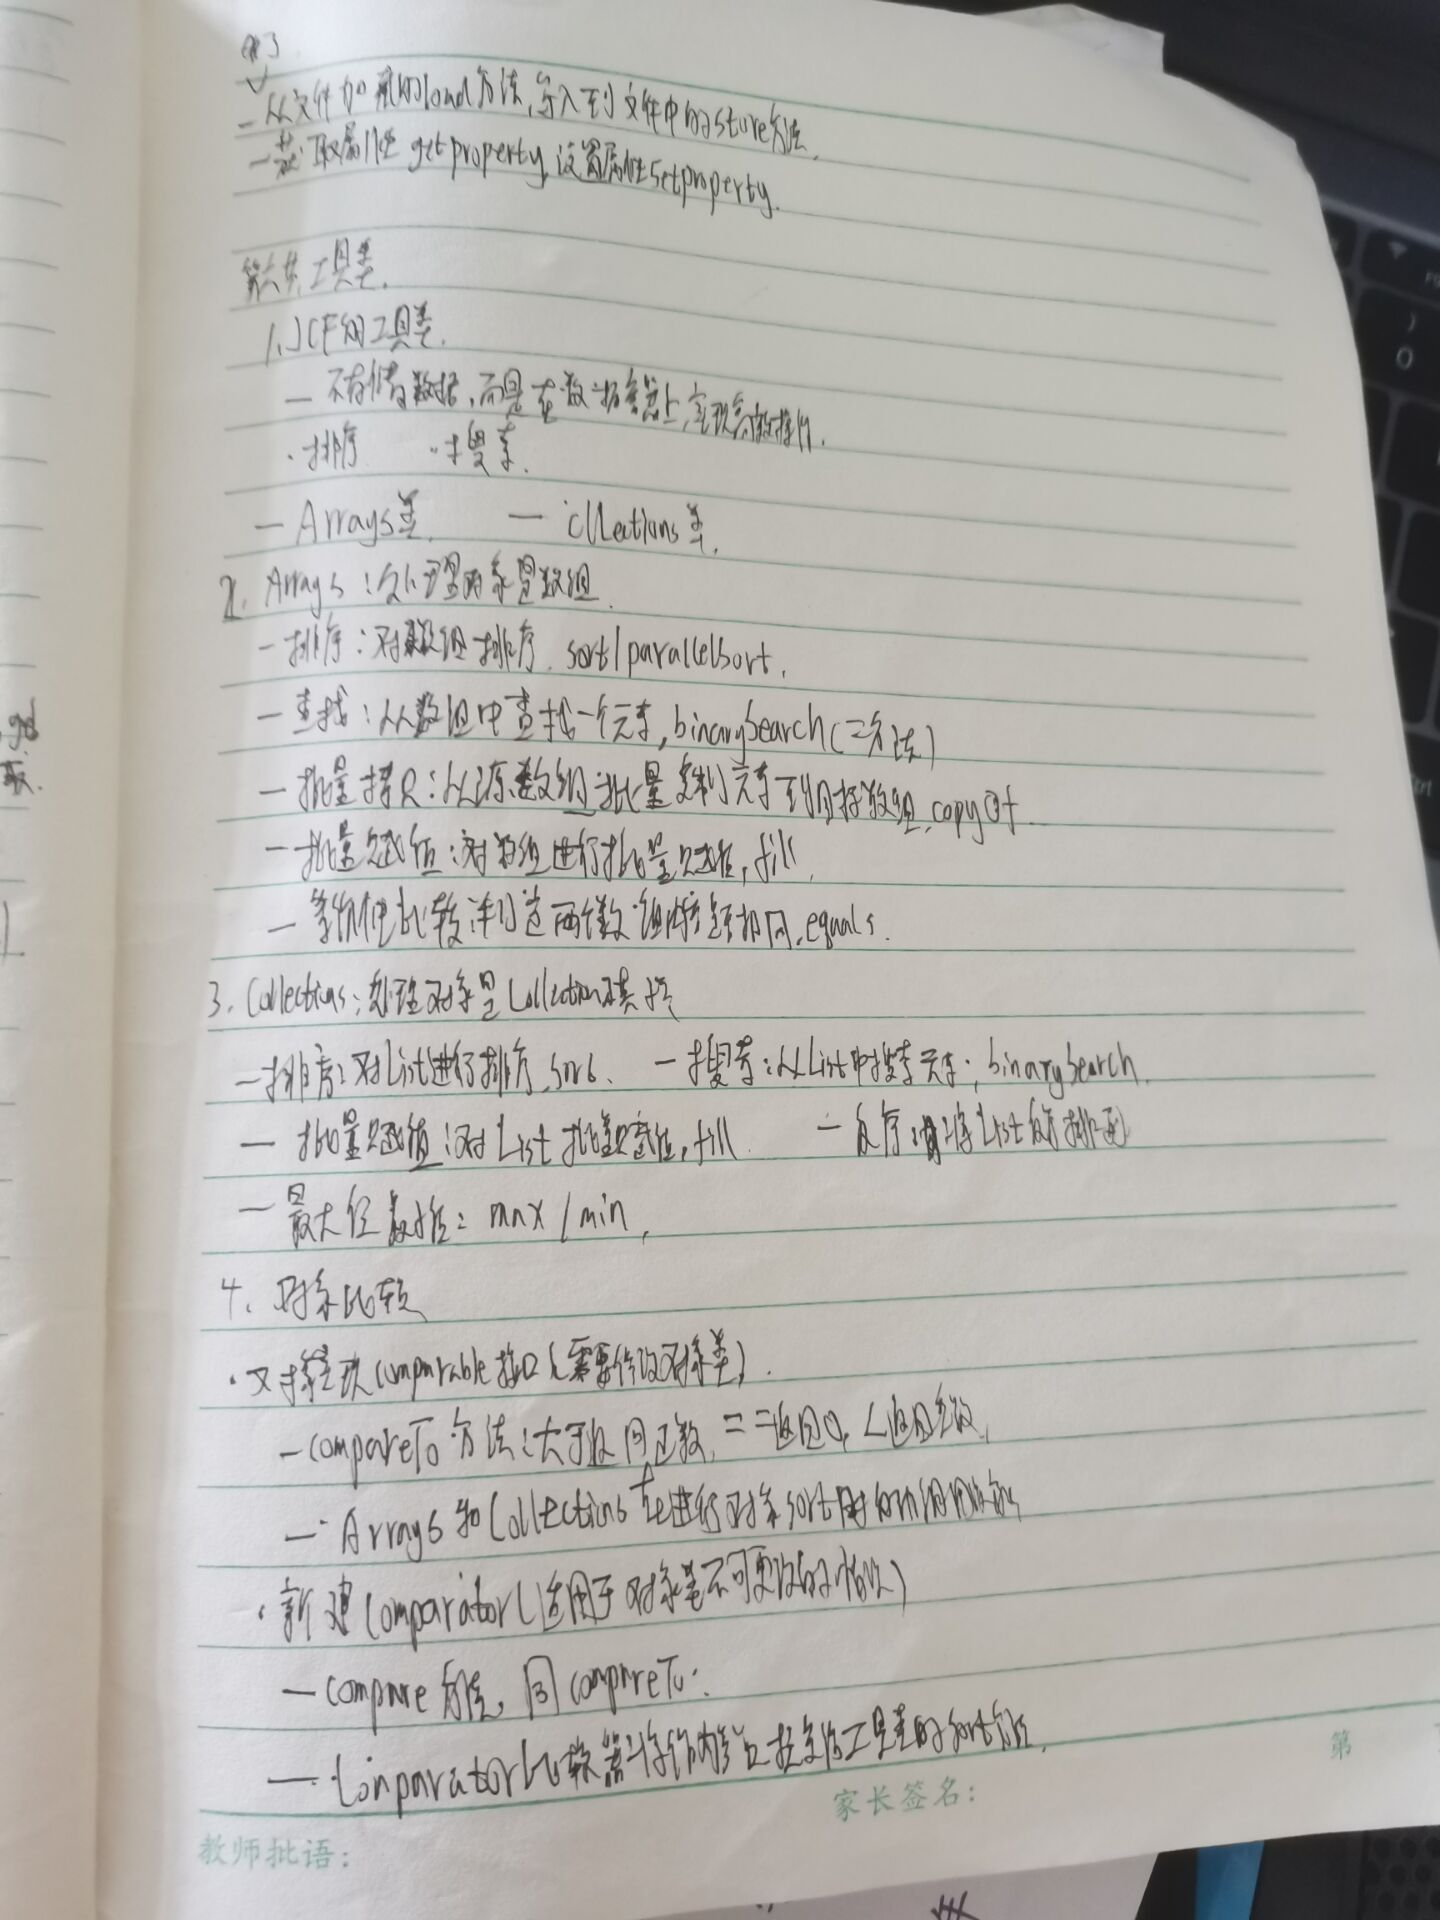 - 从文件加载的load方法,写入到文件中的store方法.
- 获取属性getproperty,设置属性setproperty.
第六节.工具类.
1.JCF的工具类.
- 不存储数据,而是在数据容器上,实现高效操作.
·排序 ·搜索.
- Arrays类 - Cllections类.
2. Arrays:处理对象是数组.
- 排序:对数组排序. sort/parallelsort.
- 查找:从数组中查找一个元素,binarySearch(二分法)
- 批量拷贝:从源数组批量复制元素到目标数组.copyOf.
- 批量赋值:对数组进行批量赋值,fill.
- 等价性比较:判定两个数组内容是否相同.equals.
3. Collections:处理对象是Collection及其子类
- 排序:对List进行排序.sort. - 搜索:从List中搜索元素;binarySearch.
- 批量赋值:对List批量赋值,fill. - 反序:将List反序排列
- 最大值最小值:max/min.
4. 对象比较
·对象实现comparable接口(需要修改对象类).
- compareTo方法:大于返回正数,==返回0,<返回负数.
- Arrays和Collections在进行对象sort时自动调用该方法
·新建Comparator(适用于对象类不可更改的情况)
- compare方法,同compareTo.
- Comparator比较器将作为参数提交给工具类的sort方法.
第
家长签名:
教师批语: